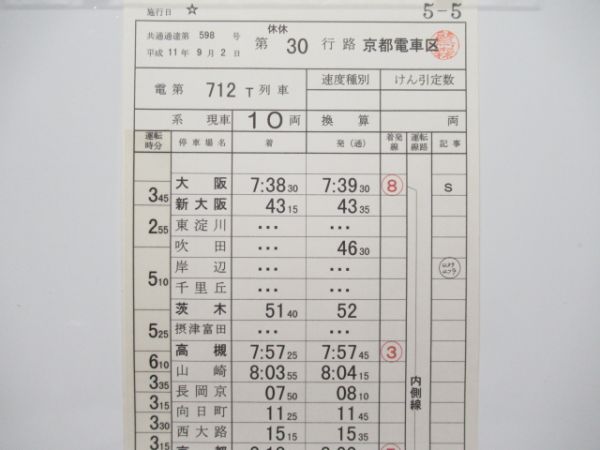 施行日 ☆ 5-5
共通通達第 598 号
平成 11年 9月 2日
休休
第 30 行路 京都電車区
電 第 712 T 列車 速度種別 けん引定数
系 現車 10 両 換算 両
運転時分 停車場名 着 発(通) 着発線 運転線路 記事
大阪 7:38 30 7:39 30 ⑧ S
3 45
新大阪 43 15 43 35
2 55
東淀川 ... ...
吹田 ... 46 30
5 10
岸辺 ... ...
千里丘 ... ...
茨木 51 40 52
5 25
摂津富田 ... ...
高槻 7:57 25 7:57 45 ③
6 10
山崎 8:03 55 8:04 15
3 35
長岡京 07 50 08 10
内側線
3 15
向日町 11 25 11 45
3 30
西大路 15 15 15 35
3 15